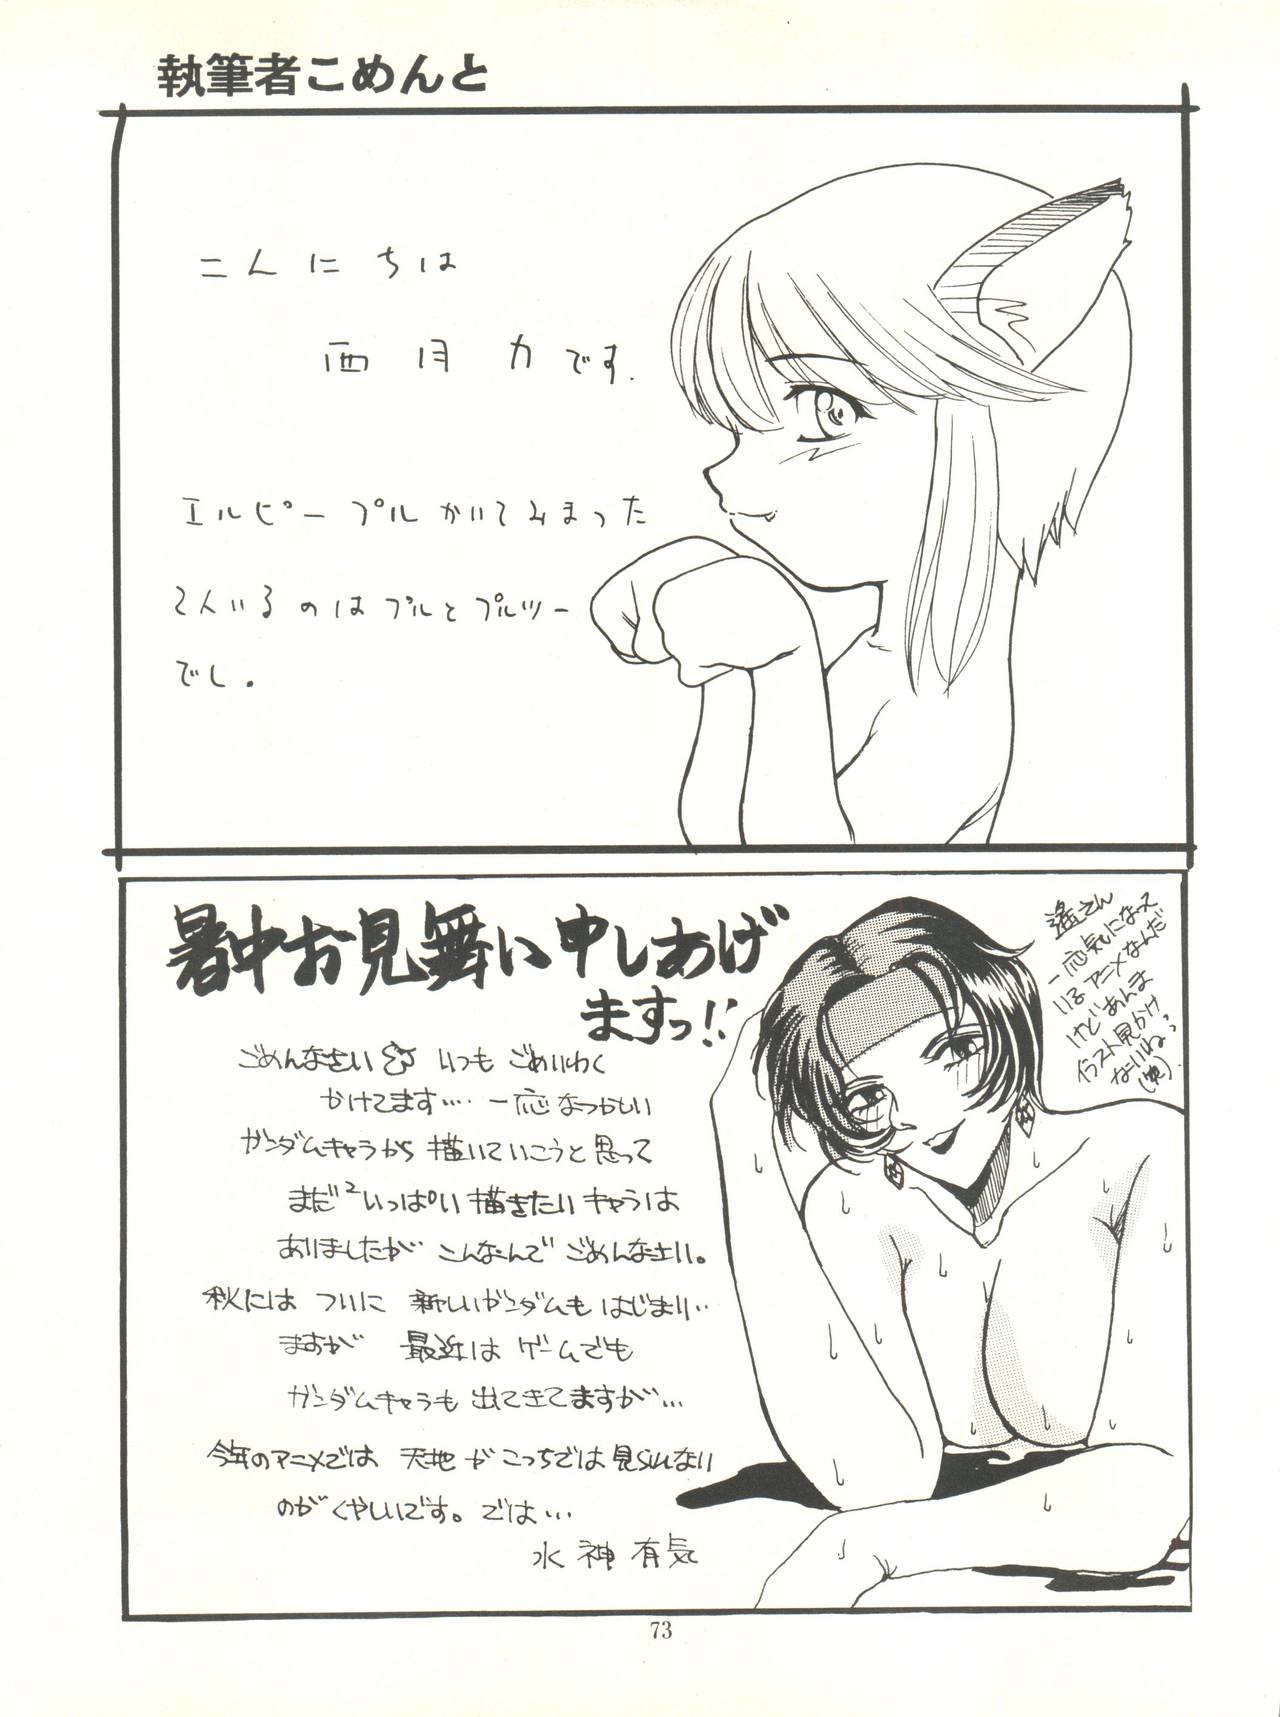 執筆者こめんと
こんにちは
西月力です.
エルピープル かいてみまった
てんいるのはプルとプルツー
でし.
暑中お見舞い申しあげ
ますっ!!
ごめんなさい いつも ごめいわく
かけてます…. 一応なつかしい
ガンダムキャラから 描いていこうと思って
まだ²いっぱい 描きたい キャラは
ありましたが こんなんで ごめんなさい。
秋には ついに 新しいガンダムも はじまり‥
ますが 最近は ゲームでも
ガンダムキャラも 出てきてますが…
今年のアニメでは 天地が こっちでは 見られない
のが くやしいです。では…
水神有気
遙さん
一応気になって
いる アニメなんだ
けど あんま
イラスト見かけ
ないねっ
(笑).
73